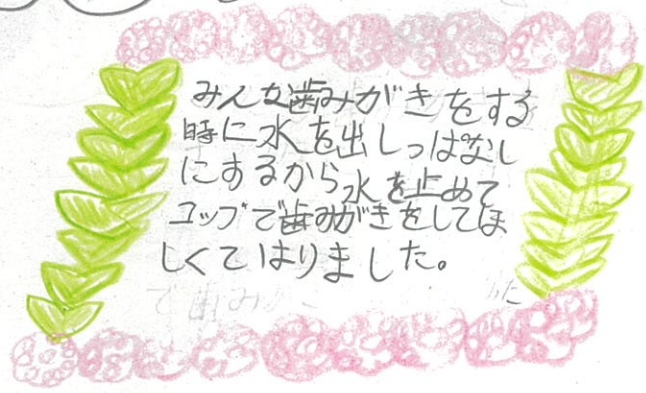 みんな歯みがきをする
時に水を出しっぱなし
にするから水を止めて
コップで歯みがきをしてほ
しくてはりました。